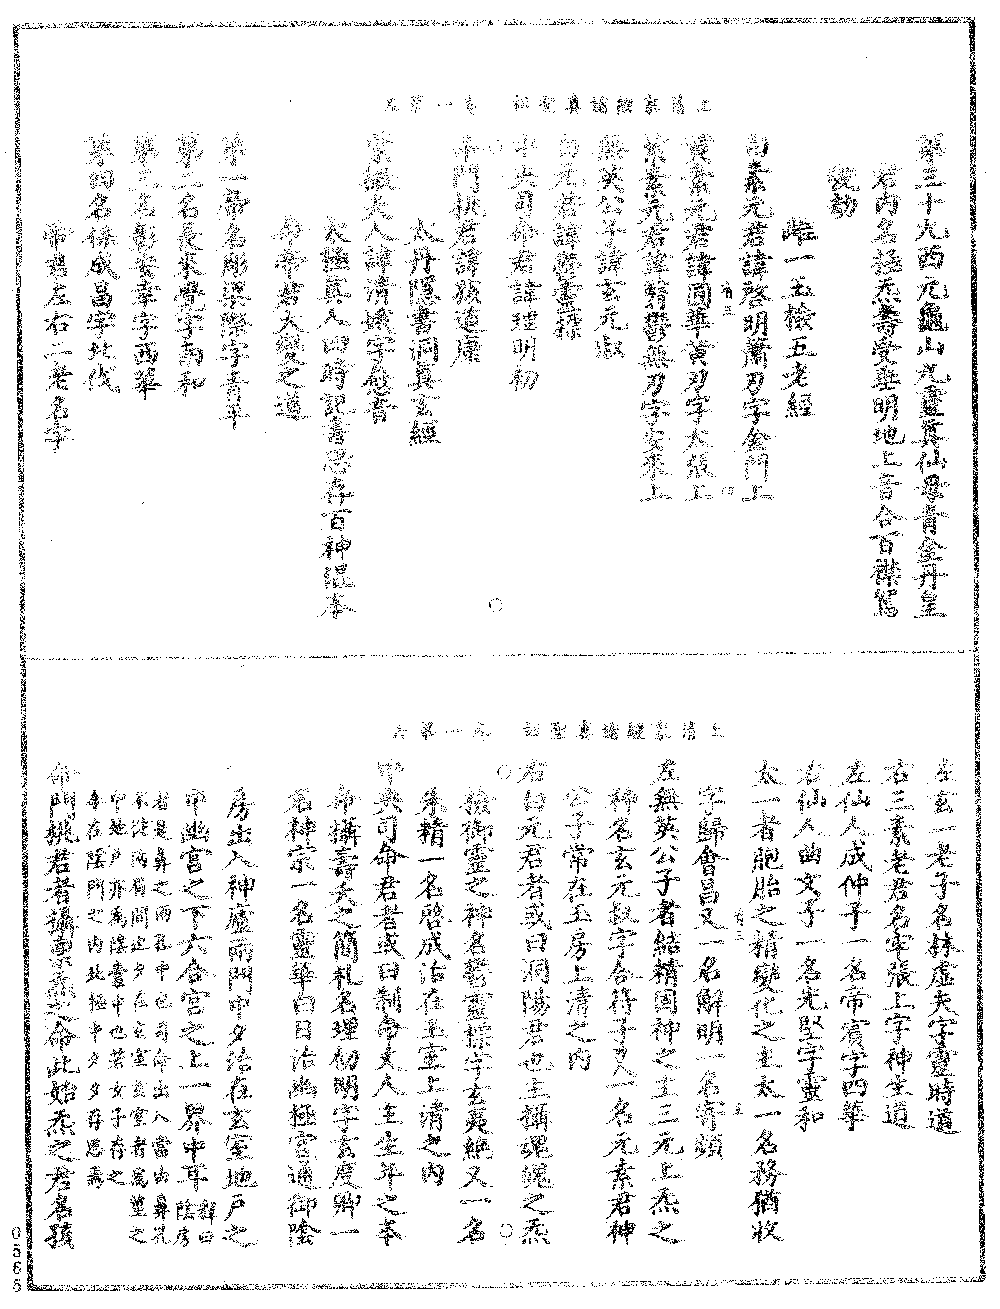 上清衆經諸真聖祕　卷一第五
第三十九西元龜山九靈真仙母青金丹皇
君內名極炁壽受生明地上音合百襟篤
雌一玉檢五老經
白素元君諱啓明蕭刃字金門上
黃素元君諱圓華黃刃字太張上
紫素元君諱翳鬱無刃字安來上
無英公子諱玄元叔
白元君諱鬱靈標
中央司命君諱理明初
命門桃君諱孩道康
太丹隱書洞真玄經
紫微夫人諱清娥字愈音
太極真人四時記書思存百神混本
命帝君大變之道
第一帝名彫梁際字青平
第二名長來覺字南和
第三名彰安幸字西華
第四名保成昌字北伐
帝君左右二老名字
上清衆經諸真聖祕　卷一第六
左玄一老子名林虛夫字靈時道
右三素老君名牢張上字神生道
左仙人成仲子一名帝賓字四華
右仙人曲文子一名光堅字靈和
太一者胞胎之精變化之主太一名務猶收
字歸會昌又一名解明一名寄頻
左無英公子者結精固神之主三元上炁之
神名玄元叔字合符子又一名元素君神
公子常在玉房上清之內
右白元君者或曰洞陽君也主攝魂魄之炁
檢御靈之神名鬱靈標字玄夷絕又一名
朱精一名啓成治在玉堂上清之內
中央司命君者或曰制命丈人主生年之本
命攝壽夭之簡札名理明初字玄度卿一
名神宗一名靈華白日治幽極宮通御陰
房出入神廬兩門中夕治在玄室地戶之
中幽宮之下六合宮之上一界中耳 釋曰陰房
者是鼻之兩孔中也司命出入當由鼻孔
不從兩眉間也夕在玄室玄室者莖之
中地戶亦爲陰囊中也若女子存之
令在陰門之內北極中夕夕存思焉
命門桃君者攝稟炁之命此始炁之君名孩
0565